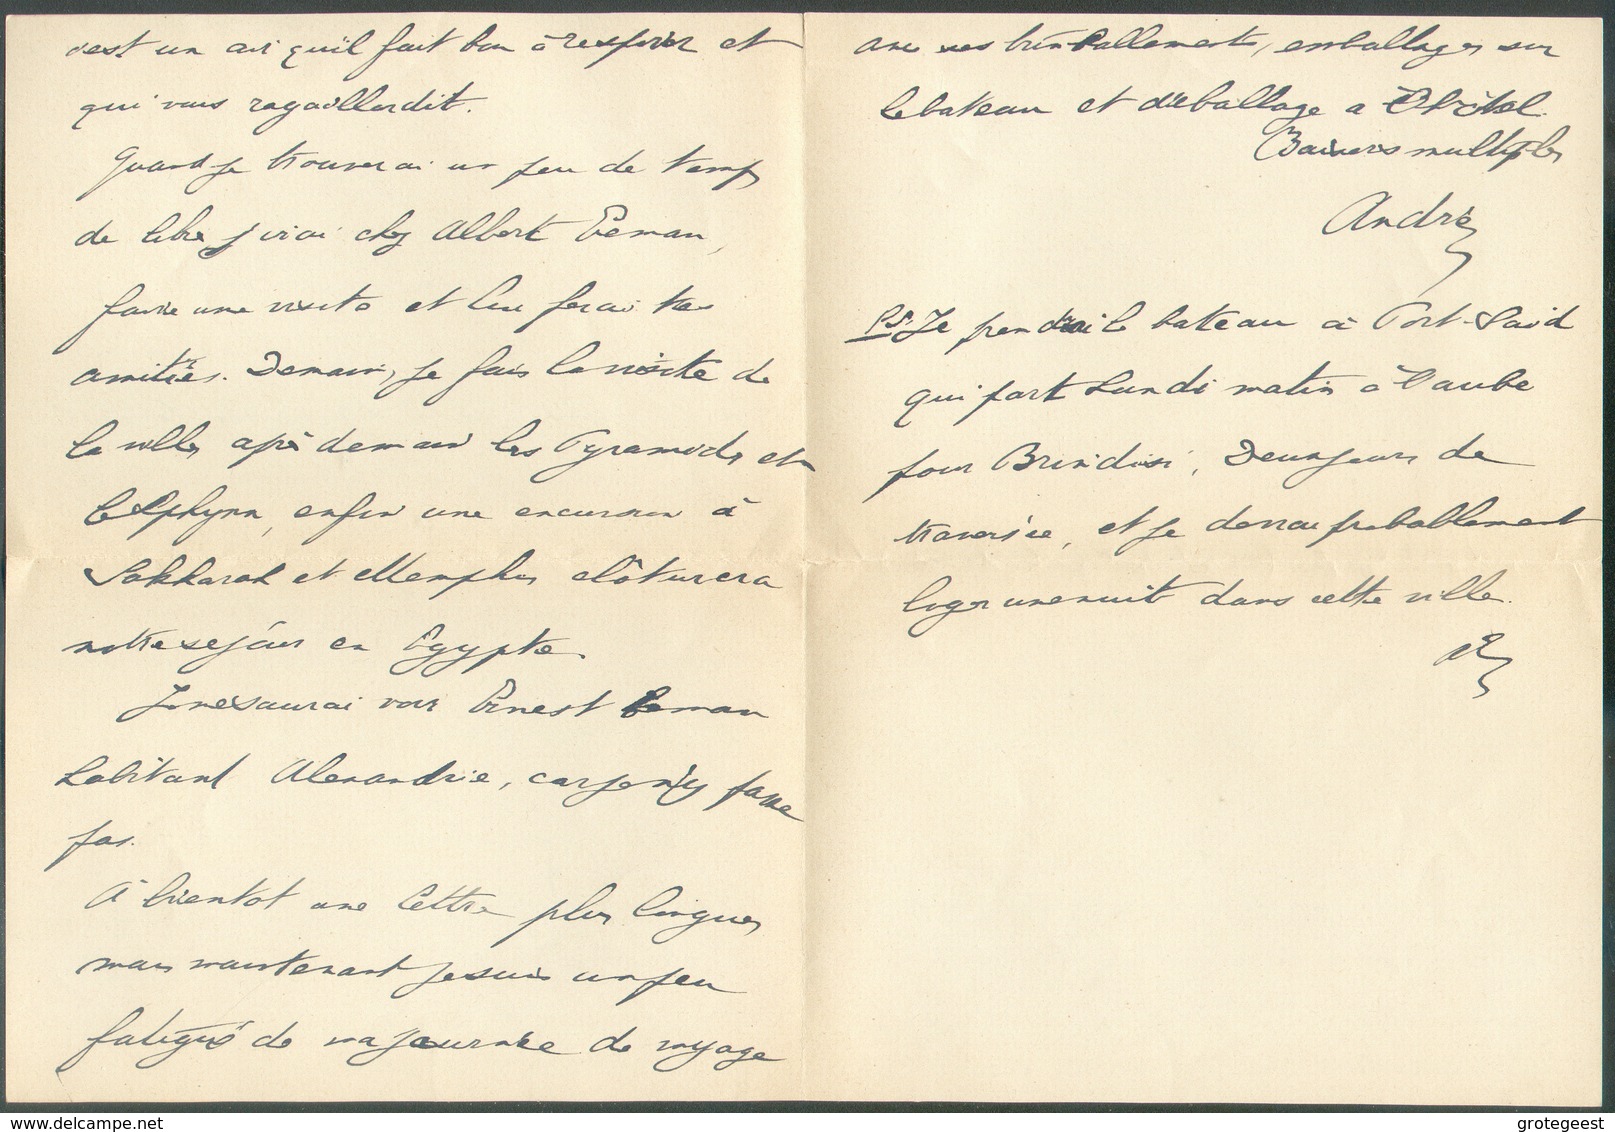 c'est un air qu'il fait bon à respirer et
qui vous ragaillardit.
Quand je trouverai un peu de temps
de libre j'irai chez Albert Eeman,
faire une visite et lui ferai tes
amitiés. Demain, je fais la visite de
la ville, après demain les Pyramides et
le Sphynx, enfin une excursion à
Sakkarah et Memphis clôturera
notre séjour en Egypte.
Je ne saurai voir Ernest Eeman
habitant Alexandrie, car je n'y passe
pas.
À bientôt une lettre plus longue,
mais maintenant je suis un peu
fatigué de ma journée de voyage
avec ses trimballements, emballages sur
le bateau et déballage a l'hôtel.
Baisers multiples
André
PS. Je prendrai le bateau à Port-Saïd
qui part Lundi matin à l'aube
pour Brindisi. Deux jours de
traversée, et je devrai probablement
loger une nuit dans cette ville.
AE
delcampe.net
grotegeest